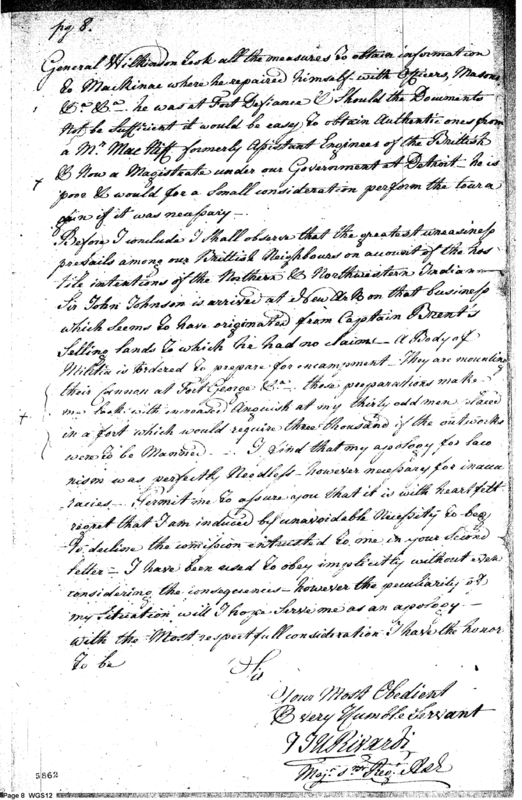 pg 8.
General Wilkinson took all the measures to obtain information
to Mackinac where he repaired himself with Officers, Masons
&ca &ca - he was at Fort Defiance & Should the Documents
not be sufficient it would be easy to obtain Authentic ones from
a Mr Mac Niff formerly Assistant Engineer of the British
& Now a Magistrate under our Government at Detroit - he is
poor & would for a Small consideration perform the tour a
gain if it was necessary -
Before I conclude I shall observe that the greatest uneasiness
prevails among our Brittish Neighbours on account of the hos
tile intentions of the Northern & Northwestern Indians -
Sir John Johnson is arrived at New Ark on that business
which seems to have originated from Captain Brent's
Selling lands to which he had no claim - A Body of
Militia is ordered to prepare for encampment - They are mounting
their Cannon at Fort George &ca - those preparations make
me look with increased Anguish at my thirty odd men placed
in a fort which would require three thousand if the outworks
were to be Manned - I find that my apology for laco
nism was perfectly Needless - however necessary for inaccu
racies - Permit me to assure you that it is with heartfelt
regret that I am induced by unavoidable Necessity to beg
to decline the comission entrusted to me in your Second
letter - I have been used to obey implicitly without even
considering the consequences - however the peculiarity of
my Situation will I hope Serve me as an apology -
with the Most respectfull consideration I have the honor
to be
Sir
Your Most Obedient
& very Humble Servant
J J U Rivardi
Majr 1st Regt A&E
5862
Page 8 WGS12